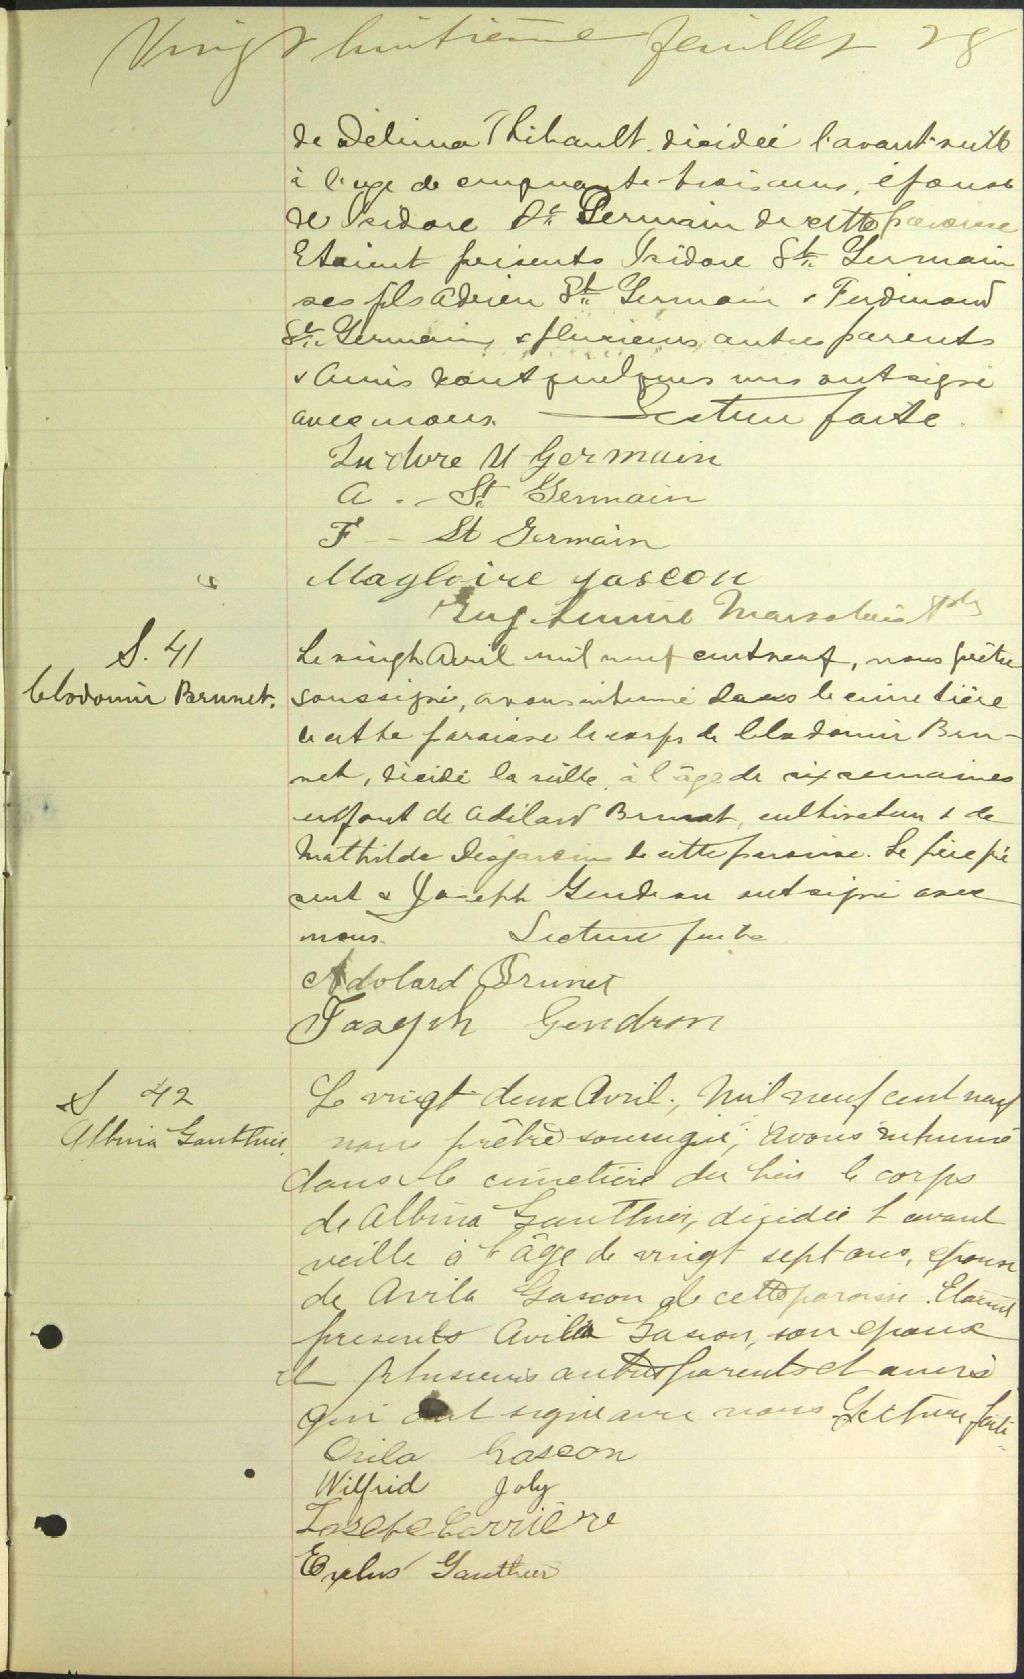 Vingt huitième feuillet 28
de Délima Thibault, décédée l'avant veille
à l'age de cinquante-trois ans, épouse
de Isidore St. Germain de cette paroisse
Etaient présents Isidore St. Germain
ses fils Adrien St. Germain & Ferdinand
St. Germain, & plusieurs autres parents
& amis dont quelques uns ont signé
avec nous. Lecture faite.
Isidore St Germain
A. - St. Germain
F - St Germain
Magloire Gascon
Eug. Marsolais Ptre
S. 41
Clodomir Brunet.
Le vingt Avril mil neuf cent neuf, nous prêtre
soussigné, avons inhumé dans le cimetière
de cette paroisse le corps de Clodomir Bru-
net, décédé la veille, à l'âge de six semaines
enfant de Adélard Brunet, cultivateur & de
Mathilde Desjardins de cette paroisse. Le père pré
sent & Joseph Gendron ont signé avec
nous. Lecture faite
Adolard Brunet
Joseph Gendron
S 42
Albina Gauthier.
Le vingt-deux Avril, Mil neuf cent neuf
nous prêtre soussigné, avons inhumé
dans le cimetière du lieu le corps
de Albina Gauthier, décédée l'avant
veille à l'âge de vingt sept ans, épouse
de Avila Gascon de cette paroisse. Etaient
présents Avila Gascon, son époux
et plusieurs autres parents et amis
qui ont signé avec nous Lecture faite.
Avila Gascon
Wilfrid Joly
Carrière
Gauthier